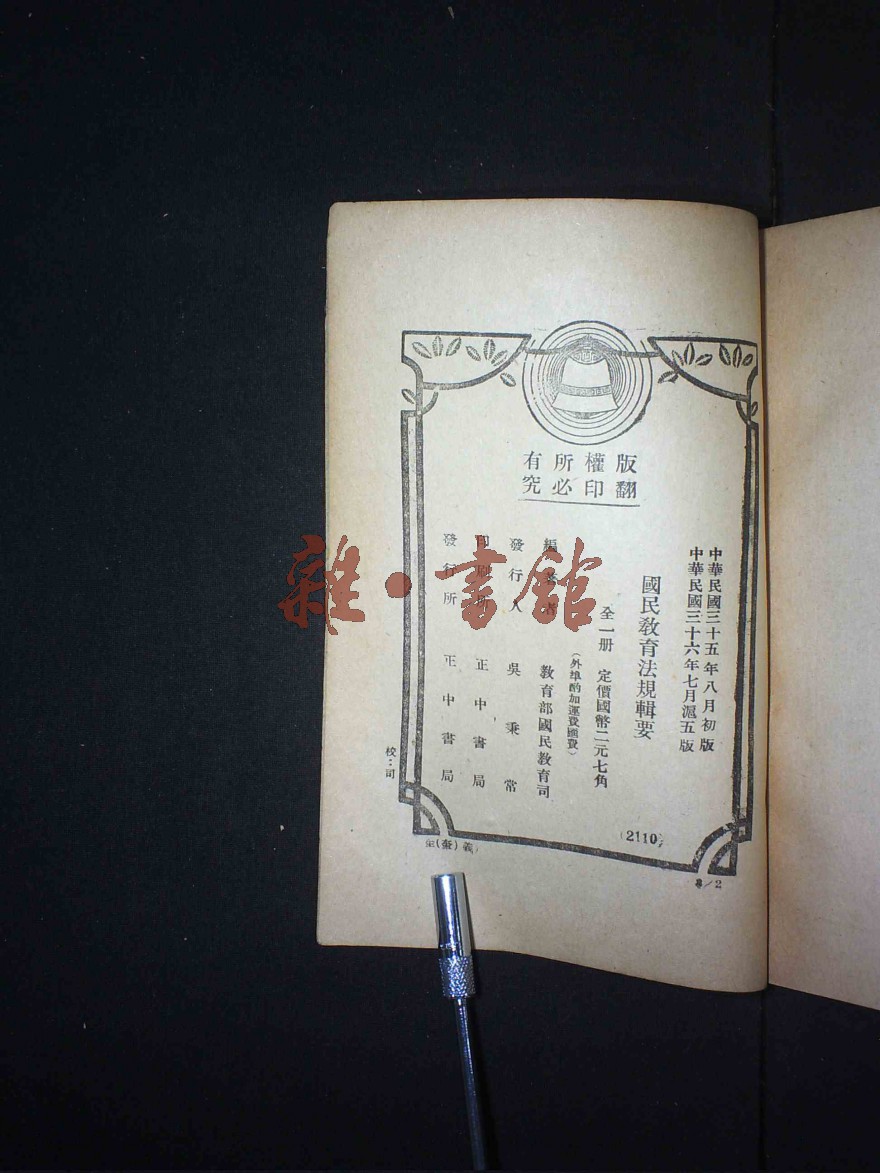 版權所有
翻印必究
中華民國三十五年八月初版
中華民國三十六年七月滬五版
國民教育法規輯要
全一册 定價國幣二元七角
(外埠酌加運費匯費)
編著者 教育部國民教育司
發行人 吳秉常
印刷所 正中書局
發行所 正中書局
校:司
(2110)
3/2
雜·書館